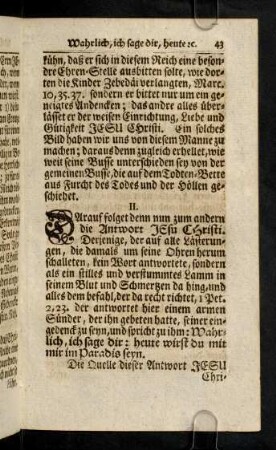 Wahrlich, ich sage dir, heute ꝛc. 43
kühn, daß er sich in diesem Reich eine beson-
dre Ehren-Stelle ausbitten solte, wie dor-
ten die Kinder Zebedäi verlangten, Marc.
10, 35. 37. sondern er bittet nur um ein ge-
neigtes Andencken; das andre alles über-
lässet er der weisen Einrichtung, Liebe und
Gütigkeit JESU Christi. Ein solches
Bild haben wir uns von diesem Manne zu
machen; daraus denn zugleich erhellet, wie
weit seine Busse unterschieden sey von der
gemeinen Busse, die auf dem Todten-Bette
aus Furcht des Todes und der Höllen ge-
schiehet.
II.
Darauf folget denn nun zum andern
die Antwort JEsu CHristi.
Derjenige, der auf alle Lästerun-
gen, die damals um seine Ohren herum
schalleten, kein Wort antwortete, sondern
als ein stilles und verstummtes Lamm in
seinem Blut und Schmertzen da hing, und
alles dem befahl, der da recht richtet, 1 Pet.
2, 23. der antwortet hier einem armen
Sünder, der ihn gebeten hatte, seiner ein-
gedenck zu seyn, und spricht zu ihm: Wahr-
lich, ich sage dir: heute wirst du mit
mir im Paradis seyn.
Die Quelle dieser Antwort JESU
Chri-